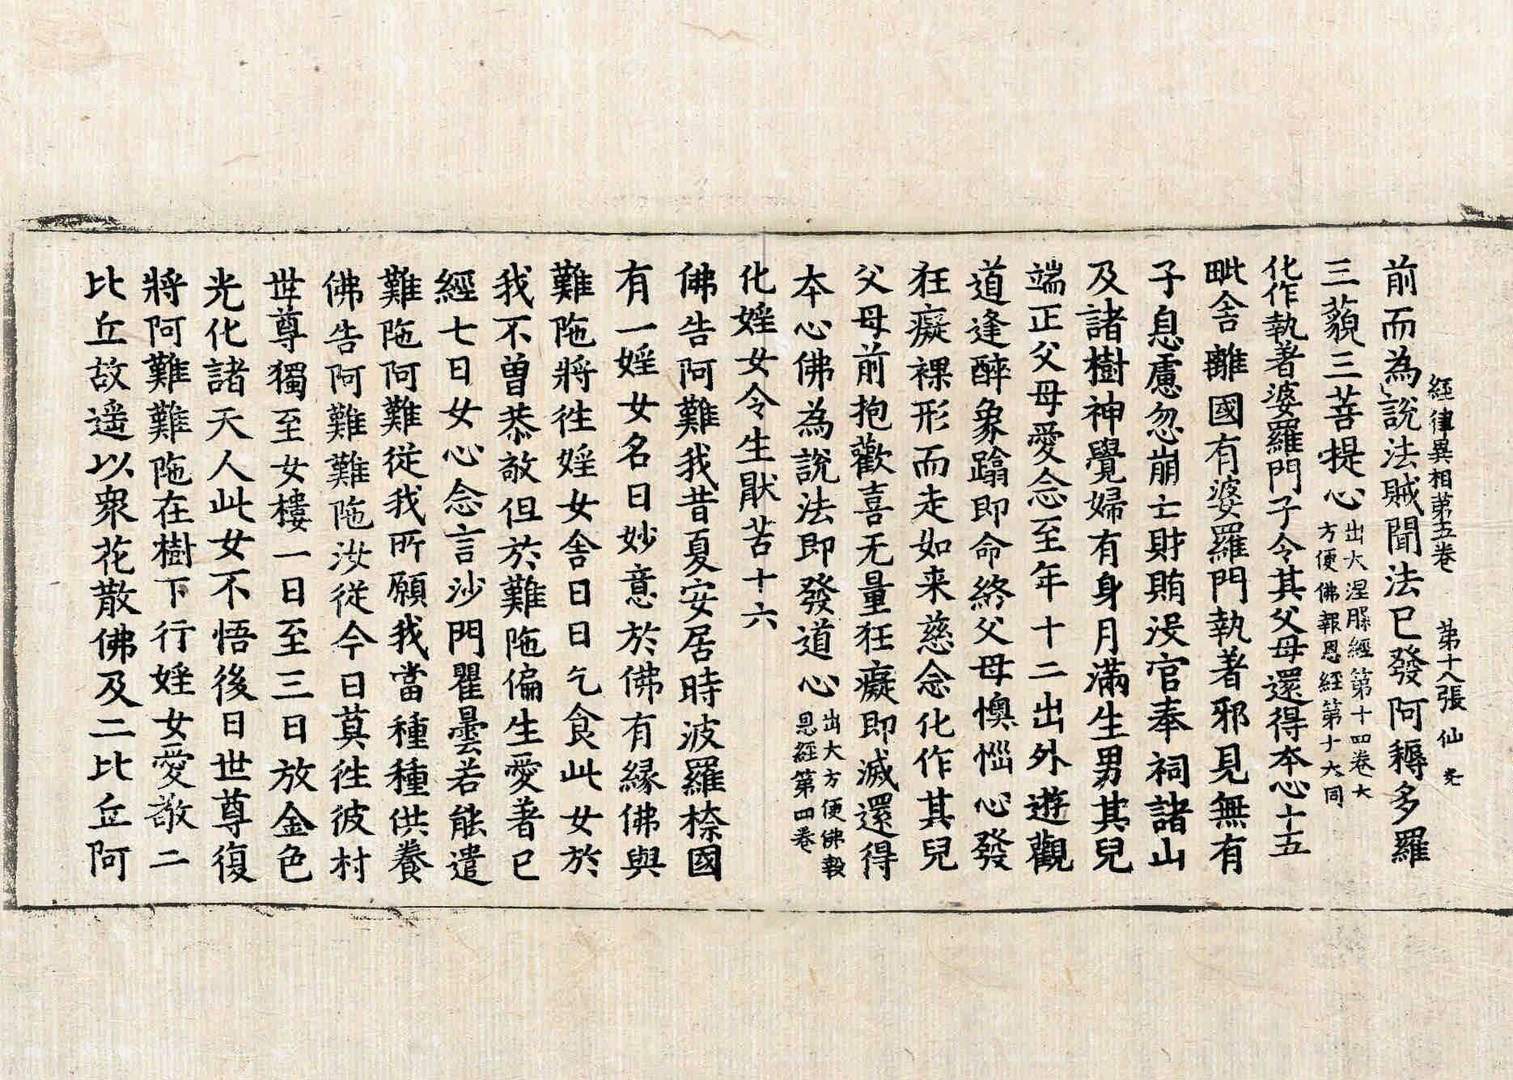 經律異相第五卷 第十八張 仙
前而為說法賊聞法已發阿耨多羅
三藐三菩提心出大涅槃經第十四卷大方便佛報恩經第十六同
化作執著婆羅門子令其父母還得本心十五
毗舍離國有婆羅門執著邪見無有
子息慮忽崩亡財賄没官奉祠諸山
及諸樹神覺婦有身月滿生男其兒
端正父母愛念至年十二出外遊觀
道逢醉象蹋即命終父母懊惱心發
狂癡裸形而走如来慈念化作其兒
父母前抱歡喜无量狂癡即滅還得
本心佛為說法即發道心出大方便佛報恩經第四卷
化婬女令生猒苦十六
佛告阿難我昔夏安居時波羅㮈國
有一婬女名曰妙意於佛有緣佛與
難陁將徃婬女舍日日乞食此女於
我不曽恭敬但於難陁偏生愛著已
經七日女心念言沙門瞿曇若能遣
難陁阿難從我所願我當種種供養
佛告阿難難陁汝從今日莫徃彼村
世尊獨至女樓一日至三日放金色
光化諸天人此女不悟後日世尊復
將阿難難陁在樹下行婬女愛敬二
比丘故遥以衆花散佛及二比丘阿